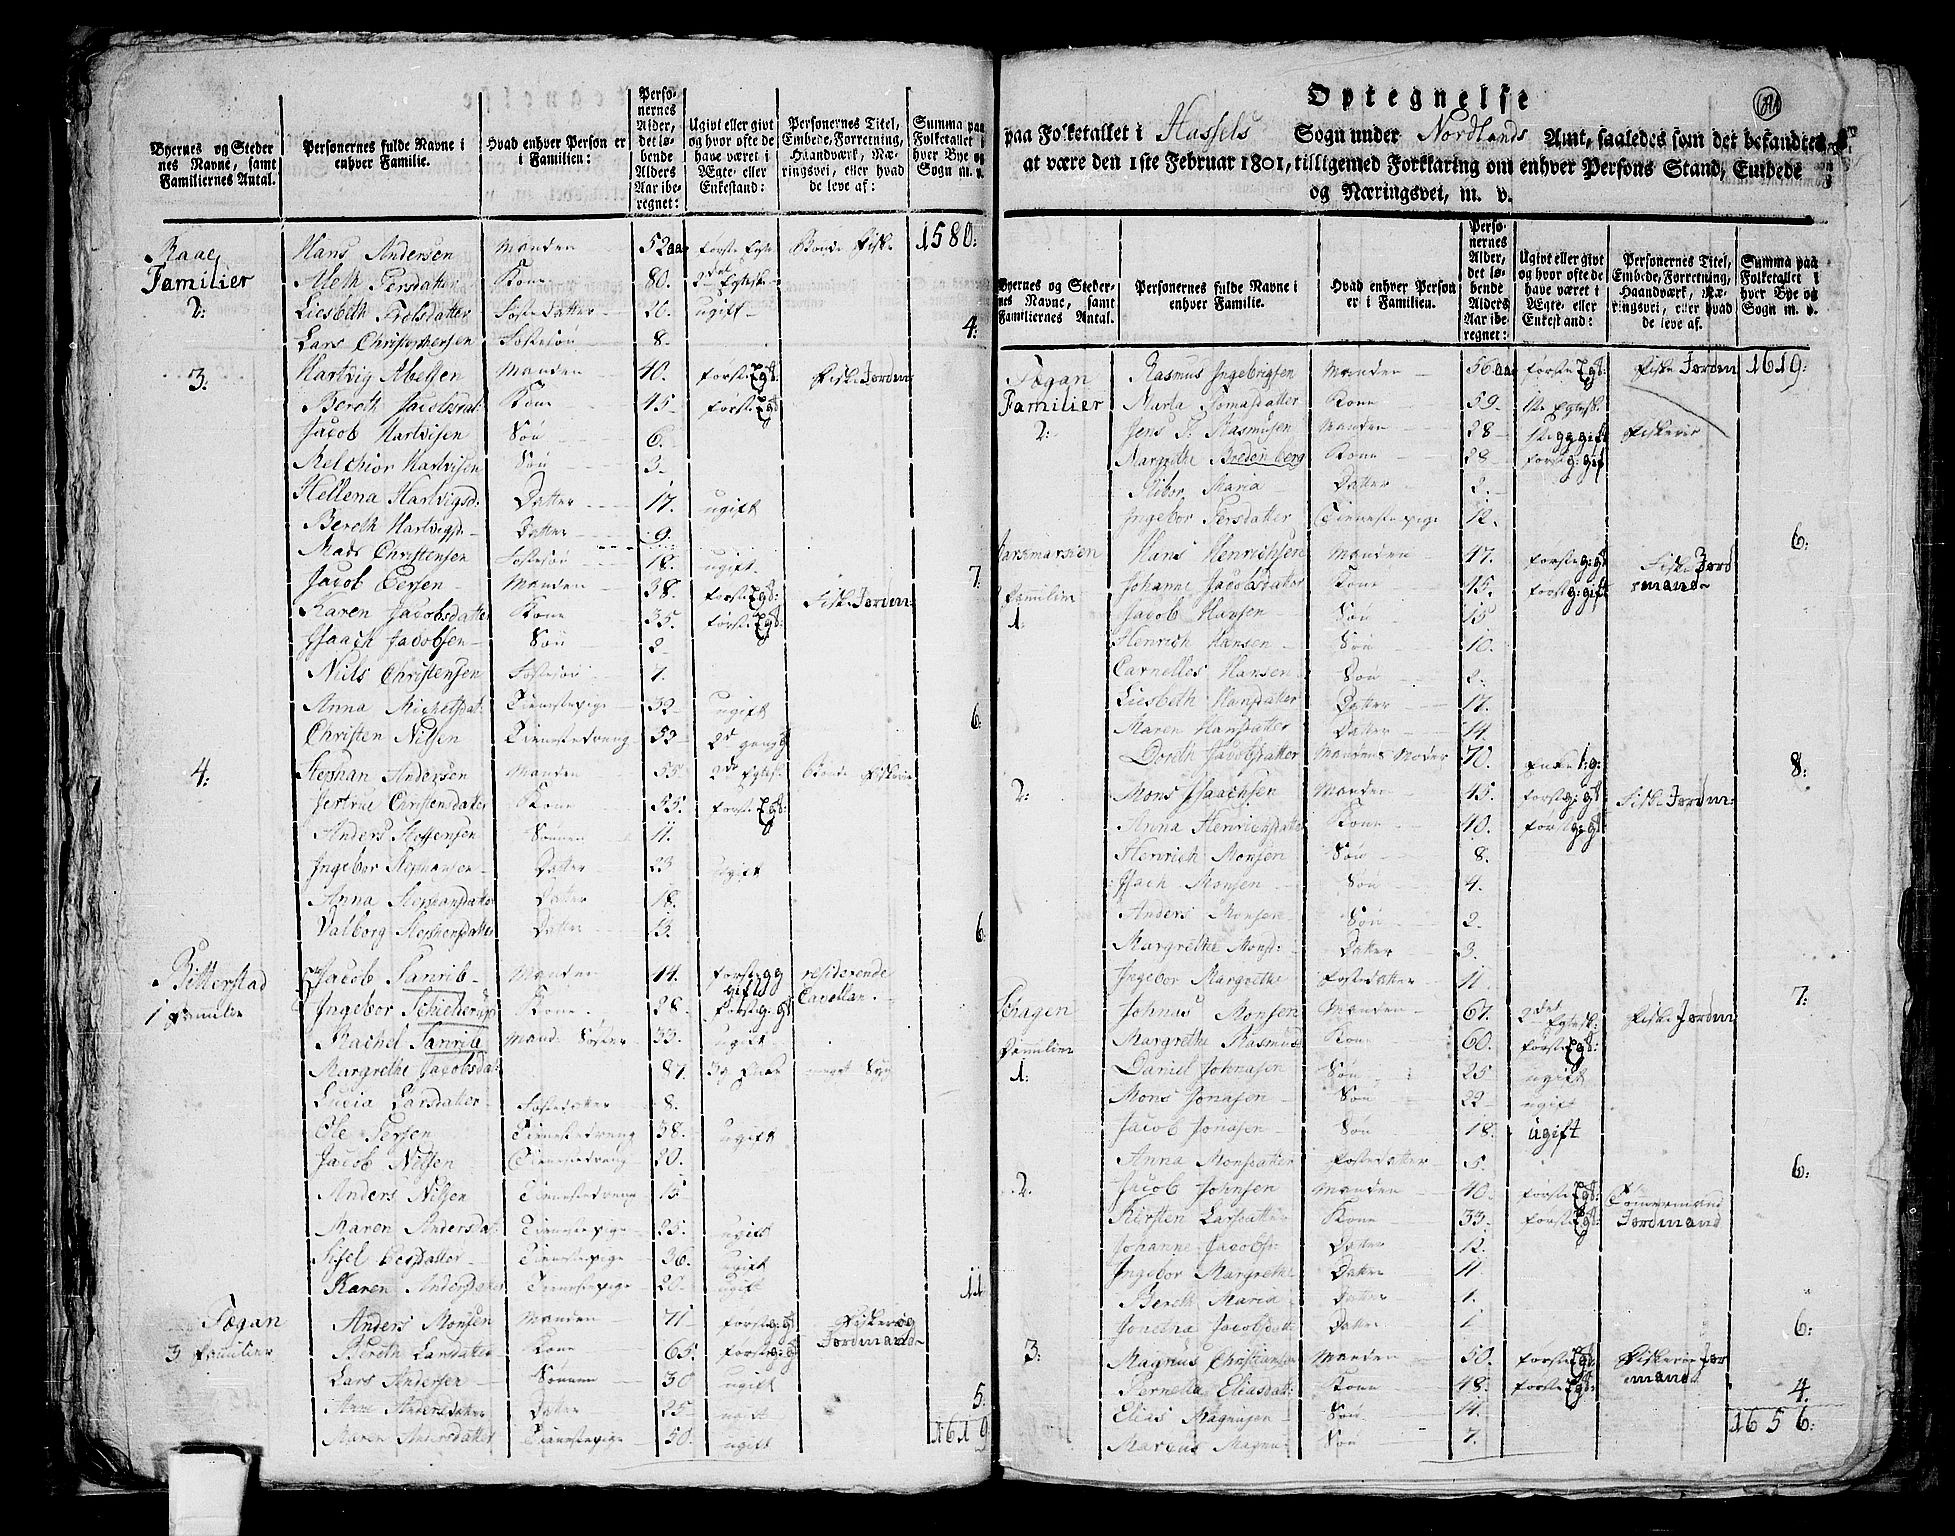 Byernes og Steder
nes Navne, samt
Familiernes Antal.
Personernes fulde Navne i
enhver Familie.
Hvad enhver Person er
i Familien:
Perso-
nernes
Alder,
det lø-
bende
Alders
Aar ibe-
regnet:
Ugivt eller givt
og hvor ofte de
have været i
Ægte- eller
Enkestand:
Personernes Titel,
Embede, Forretning,
Haandværk, Næ-
ringsvei, eller hvad
de leve af:
Summa paa
Folketallet i
hver Bye og
Sogn m. v.
Raae Hans Andersen Manden 52 aar første Egte Bonde Fisk: 1580:
Familier Aleth Persdatter Kone 80. 2det Egtesk:
2: Liesbeth Troelsdatter Fosterdatter 20. ugift
Lars Christophersen Fostersøn 8. 4:
3. Hartvig Abelsen Manden 40. første Egt Fisk: Jordm
Bereth Jacobsdat: Kone 45. første Egt
Jacob Hartvisen Søn 6.
Melchior Hartvisen Søn 3.
Hellena Hartvigsd: Datter 17. ugift
Bereth Hartvigsd: Datter 9.
Mads Christensen Fostersøn 18. ugift 7:
Jacob Persen Manden 38. første Egt: Fisk: Jordm:
Karen Jacobsdatter Kone 35. første Egt:
Isaach Jacobsen Søn 2
Niels Christensen Fostersøn 7.
Anna Michelsdat: Tienestepige 32 ugift 6:
Christen Nilsen Tienestedreng 52 2d gang gt
4: Stephan Andersen Manden 55 2de Egtesk: Bonde Fisker
Jertrue Christensdatter Kone 55. første Egt:
Anders Steffensen Sønnen 11.
Ingebor Stephansen Datter 23 ugift
Anna Stephansdatter Datter 18.
Valborg Stephensdatter Datter 13. 6:
Bitterstad Jacob Tanrib Manden 44. første gg residerende
1 Familie gift Capellan.
Ingebor Schielderup Kone 28. første g: gt
Rachel Tanrib Mand: Søster 33. ugift
Margrethe Jacobsdat: 87. 3g Enke
Lucia Larsdatter Fosterdatter 8.
Ole Persen Tienestedreng 38. ugift
Jacob Nilsen Tienestedreng 20.
Anders Nilsen Tienestedreng 15
Maren Andersdat: Tienestepige 25. ugift
Sisel Persdatter Tienestepige 36. ugift
Karen Andersdatter Tienestepige 20. ugift 11
Tøgan Anders Monsen Manden 71 første g: gt Fisker og
3 Familier Bereth Larsdatter Kone 65. første g: g Jordmand
Lars Andersen Sønnen 30 ugift
Ane Andersdatter Datter 25 ugift 5.
Maren Andersdatter Tienestepige 50. ugift 1619
Optegnelse
paa Folketallet i Hassels Sogn under Nordlands Amt, saaledes som det befandtes
at være den 1ste Februar 1801, tilligemed Forklaring om enhver Persons Stand, Embede
og Næringsvei, m. v.
Byernes og Steder-
nes Navne, samt
Familiernes Antal.
Personernes fulde Navne i
enhver Familie.
Hvad enhver Person
er i Familien.
Perso-
nernes
Alder,
det lø-
bende
Alders
Aar ibe-
regnet:
Ugivt eller givt
og hvor ofte de
have været i
Ægte- eller
Enkestand:
Personernes Titel,
Embede, Forretning,
Haandværk, Næ-
ringsvei, eller hvad
de leve af.
Summa paa
Folketallet i
hver Bye og
Sogn m. v.
Tøgan Rasmus Ingebrigsen Manden 56 aar første Egt: Fisk: Jordm 1619:
Familier Marta Tomasdatter Kone 59. 1te Egtesk:
2: Jens J. Rasmusen Manden 28 1te gg gift Fiskerie
Margrethe Bredenberg Kone 28 første g: gift
Maria Datter 2.
Ingebor Persdatter Tienestepige 12. 6:
Hans Henrichsen Manden 47. første g: gt Fisk: Jord
Familier Johanne Jacobsdatter Kone 45. første g: gift mand
1: Jacob Hansen Søn 15
Henrich Hansen Søn 10.
Carnelles Hansen Søn 2.
Liesbeth Hansdatter Datter 17.
Maren Hansdatter Datter 14.
Doreth Jacobsdatter Mandens Moder 70. Enke 1: g: 8:
2: Mons Isaachsen Manden 45. første g: gt Fisk: Jordm:
Anna Henrichsdatter Kone 40. første g: gt
Henrich Monsen Søn 8.
Isach Monsen Søn 4.
Anders Monsen Søn 2.
Margrethe Monsd: Datter 3.
Ingebor Margrethe Fosterdatter 11. 7:
Schagen Johnas Monsen Manden 67. 2det Egtesk: Fisk: Jordm
Familier Margrethe Rasmusd Kone 60. første Egt:
1: Daniel Johnasen Søn 25 ugift
Mons Jonasen Søn 22 ugift
Jacob Jonasen Søn 18. ugift
Anna Monsdatter Fosterdatter 5. 6:
2: Jacob Johnsen Manden 40. første Egt: Tømmermand
Kirsten Larsdatter Kone 33. første Egt: Jordmand
Johanne Jacobsd: Datter 12.
Ingebor Margrethe Datter 11.
Bereth Maria Datter 1.
Jonetha Jacobsdatt Datter 1 6:
3: Magnus Christiansen Manden 50. første Egt: Fiskerie Jor
Pernella Eliasdat: Kone 48. første Egt: mand 4.
Elias Magnusen Søn 14.
Marcus Magnu: Søn 7. 1656: